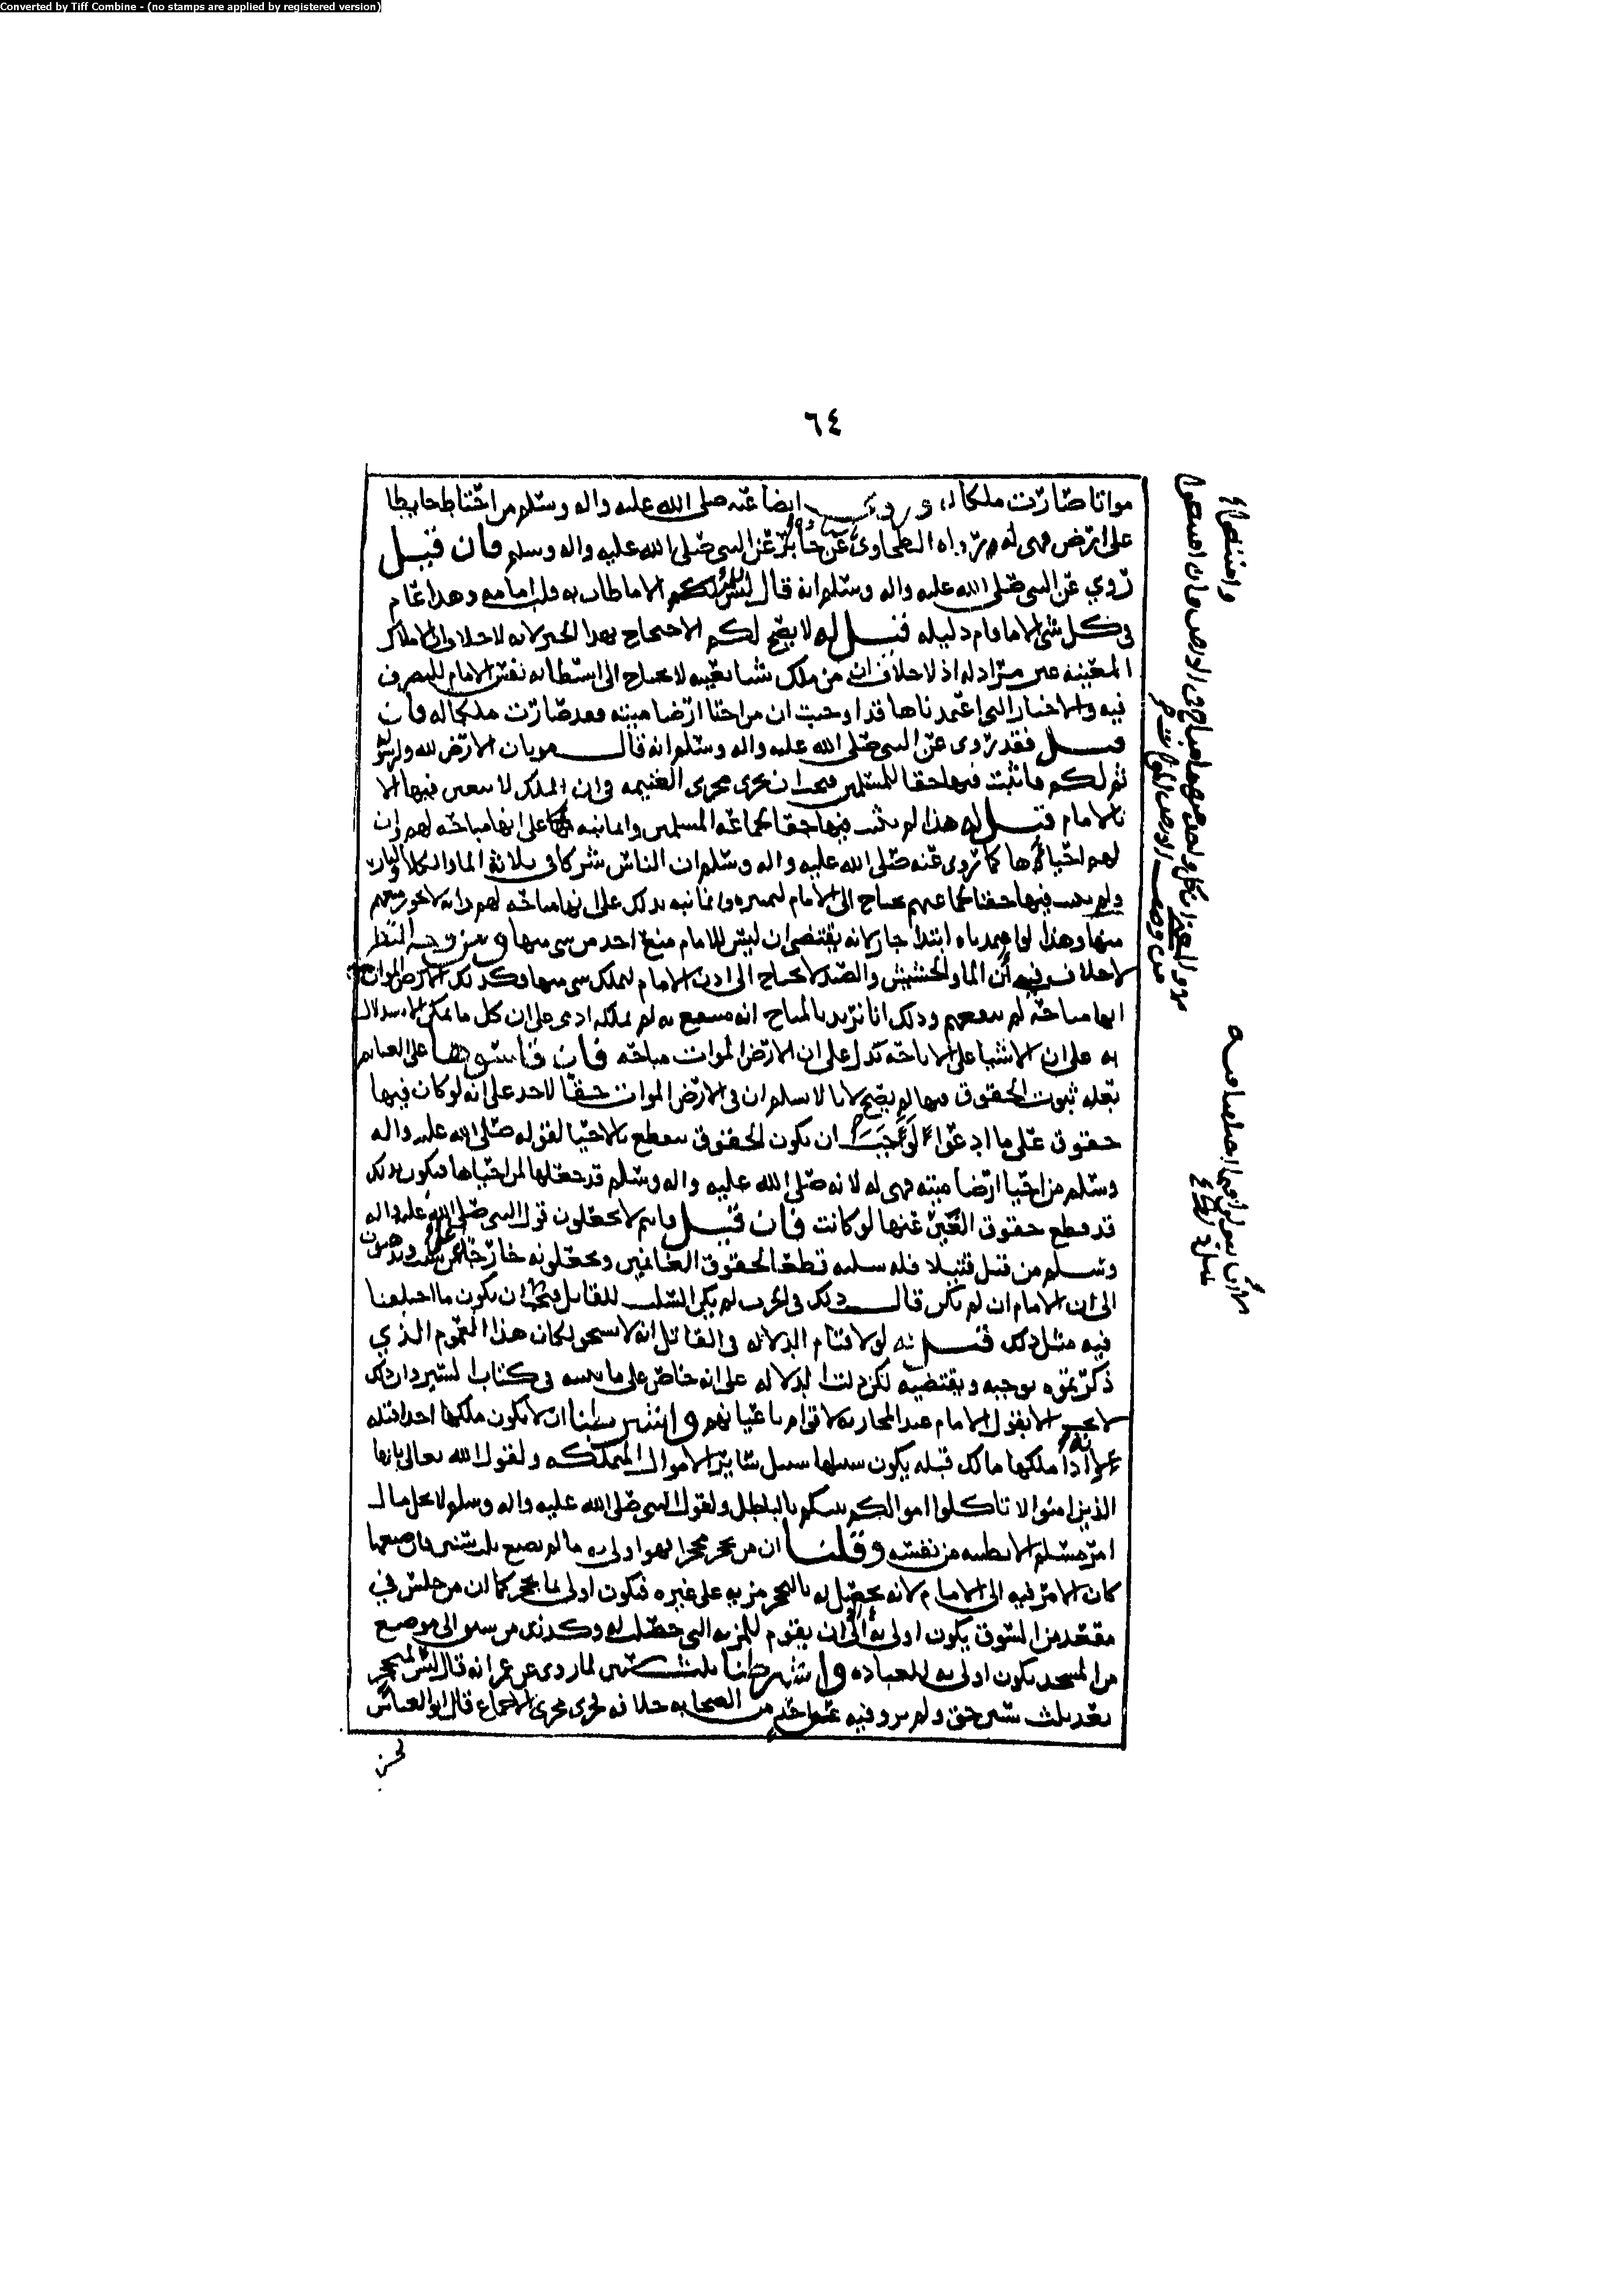 Converted by Tiff Combine - (no stamps are applied by registered version)
٦٤
مواتا صارت ملكا له وروي ايضا عنه صلى الله عليه واله وسلم من احتاط حايطا
على ارض فهي له رواه الطحاوي عن جابر عن النبي صلى الله عليه واله وسلم فان قيل
روي عن النبي صلى الله عليه واله وسلم انه قال ليس لكم الا ما طاب به قلب امامه وهذا عام
في كل شي الا ما قام دليله قيل له لا يصح لكم الاحتجاج بهذا الخبر لانه لا خلاف ان الاملاك
المعينه غير مرادله اذ لا خلاف ان من ملك شيا بعينه لا يحتاج الى استطابه نفس الامام للتصرف
فيه والاخبار التي اعتمدناها قد اوجبت ان من احيا ارضا ميته فقد صارت ملكا له فان
قيل فقد روى عن النبي صلى الله عليه واله وسلم انه قال موتان الارض لله ولرسوله
ثم لكم فاثبت فيها حقا للمسلمين فيجب ان تجرى مجرى الغنيمه في ان الملك لا يتعين فيها الا
بالامام قيل له هذا لم يثبت فيها حقا لجماعه المسلمين وانما نبه على انها مباحه لهم وان
لهم احياها كما روى عنه صلى الله عليه واله وسلم ان الناس شركا في ثلاثة الما والكلا والنار
ولم يثبت فيها حقا لجماعتهم يحتاج الى الامام لتمييزه وانما نبه بذلك على انها مباحه لهم وانه لا يجوز منعهم
منها وهذا لو اعتمدناه ابتدا جاز لانه يقتضى ان ليس للامام منع احد من شي منها ومن وجه النظر
لا خلاف فيه أن الما والحشيش والصيد لا يحتاج الى اذن الامام لتملك شي منها وكذلك الارض الموات
انها مباحة لم ودلك انا نريد بالمباح انه منتفع به لم يملكه ادمى على ان كل ما يمكن الاستدلال
به على ان الاشيا على الاباحه تدل على ان الارض الموات مباحه فان قاسوها على الغنايم
بعله ثبوت الحقوق فيها لم يصح لانا لا نسلم ان في الارض الموات حقا لاحد على انه لو كان فيها
حقوق على ما ادعوا لوجب ان يكون الحقوق تنقطع بالاحيا لقوله صلى الله عليه واله
وسلم من احيا ارضا ميته فهي له لانه صلى الله عليه واله وسلم قد جعلها لمن احياها فيكون بذلك
قد قطع حقوق الغير عنها لو كانت فان قيل فانتم لا تجعلون قول النبي صلى الله عليه واله
وسلم من قتل قتيلا فله سلبه قطعا لحقوق الغانمين وتجعلونه
الى ان الامام ان لم يكن قال ذلك في الحرب لم يكن السلب للقاتل فيجب ان يكون ما اختلفنا
فيه مثل ذلك قيل له لولا قيام الدلاله في القاتل انه لا يستحق لكان هذا العموم الذي
ذكرتموه يوجبه ويقتضيه لكن دلت الدلاله على انه خاص على ما بينته في كتاب السير وان ذلك
لا يجب الا بقول الامام عند المحاربه لاقوام باعيانهم واشترطنا ان لا يكون ملكها احد قبله
لانه اذا ملكها مالك قبله يكون سبيلها سبيل سائر الاموال المتملكه ولقول الله تعالى يا ايها
الذين امنوا لا تاكلوا اموالكم بينكم بالباطل ولقول النبي صلى الله عليه واله وسلم لا يحل مال
امرء مسلم الا بطيبه من نفسه وقلنا ان من تحجر محجرا فهو اولى به ما لم يضيع ثلث سنين فان ضيعها
كان الامر فيه الى الامام لانه يحصل له بالتحجر مزيه على غيره فيكون اولى بما تحجر كما ان من جلس في
مقعد من السوق يكون اولى به الى ان يقوم للمزيه التي حصلت له وكذلك من سبق الى موضع
من المسجد يكون اولى به للعباده واشترطنا ثلث سنين لما روى عن عمر انه قال ليس لمتحجر
بعد ثلث سنين حق ولم يرو فيه عن احد من الصحابه خلافه فجرى مجرى الاجماع قال ابو العباس